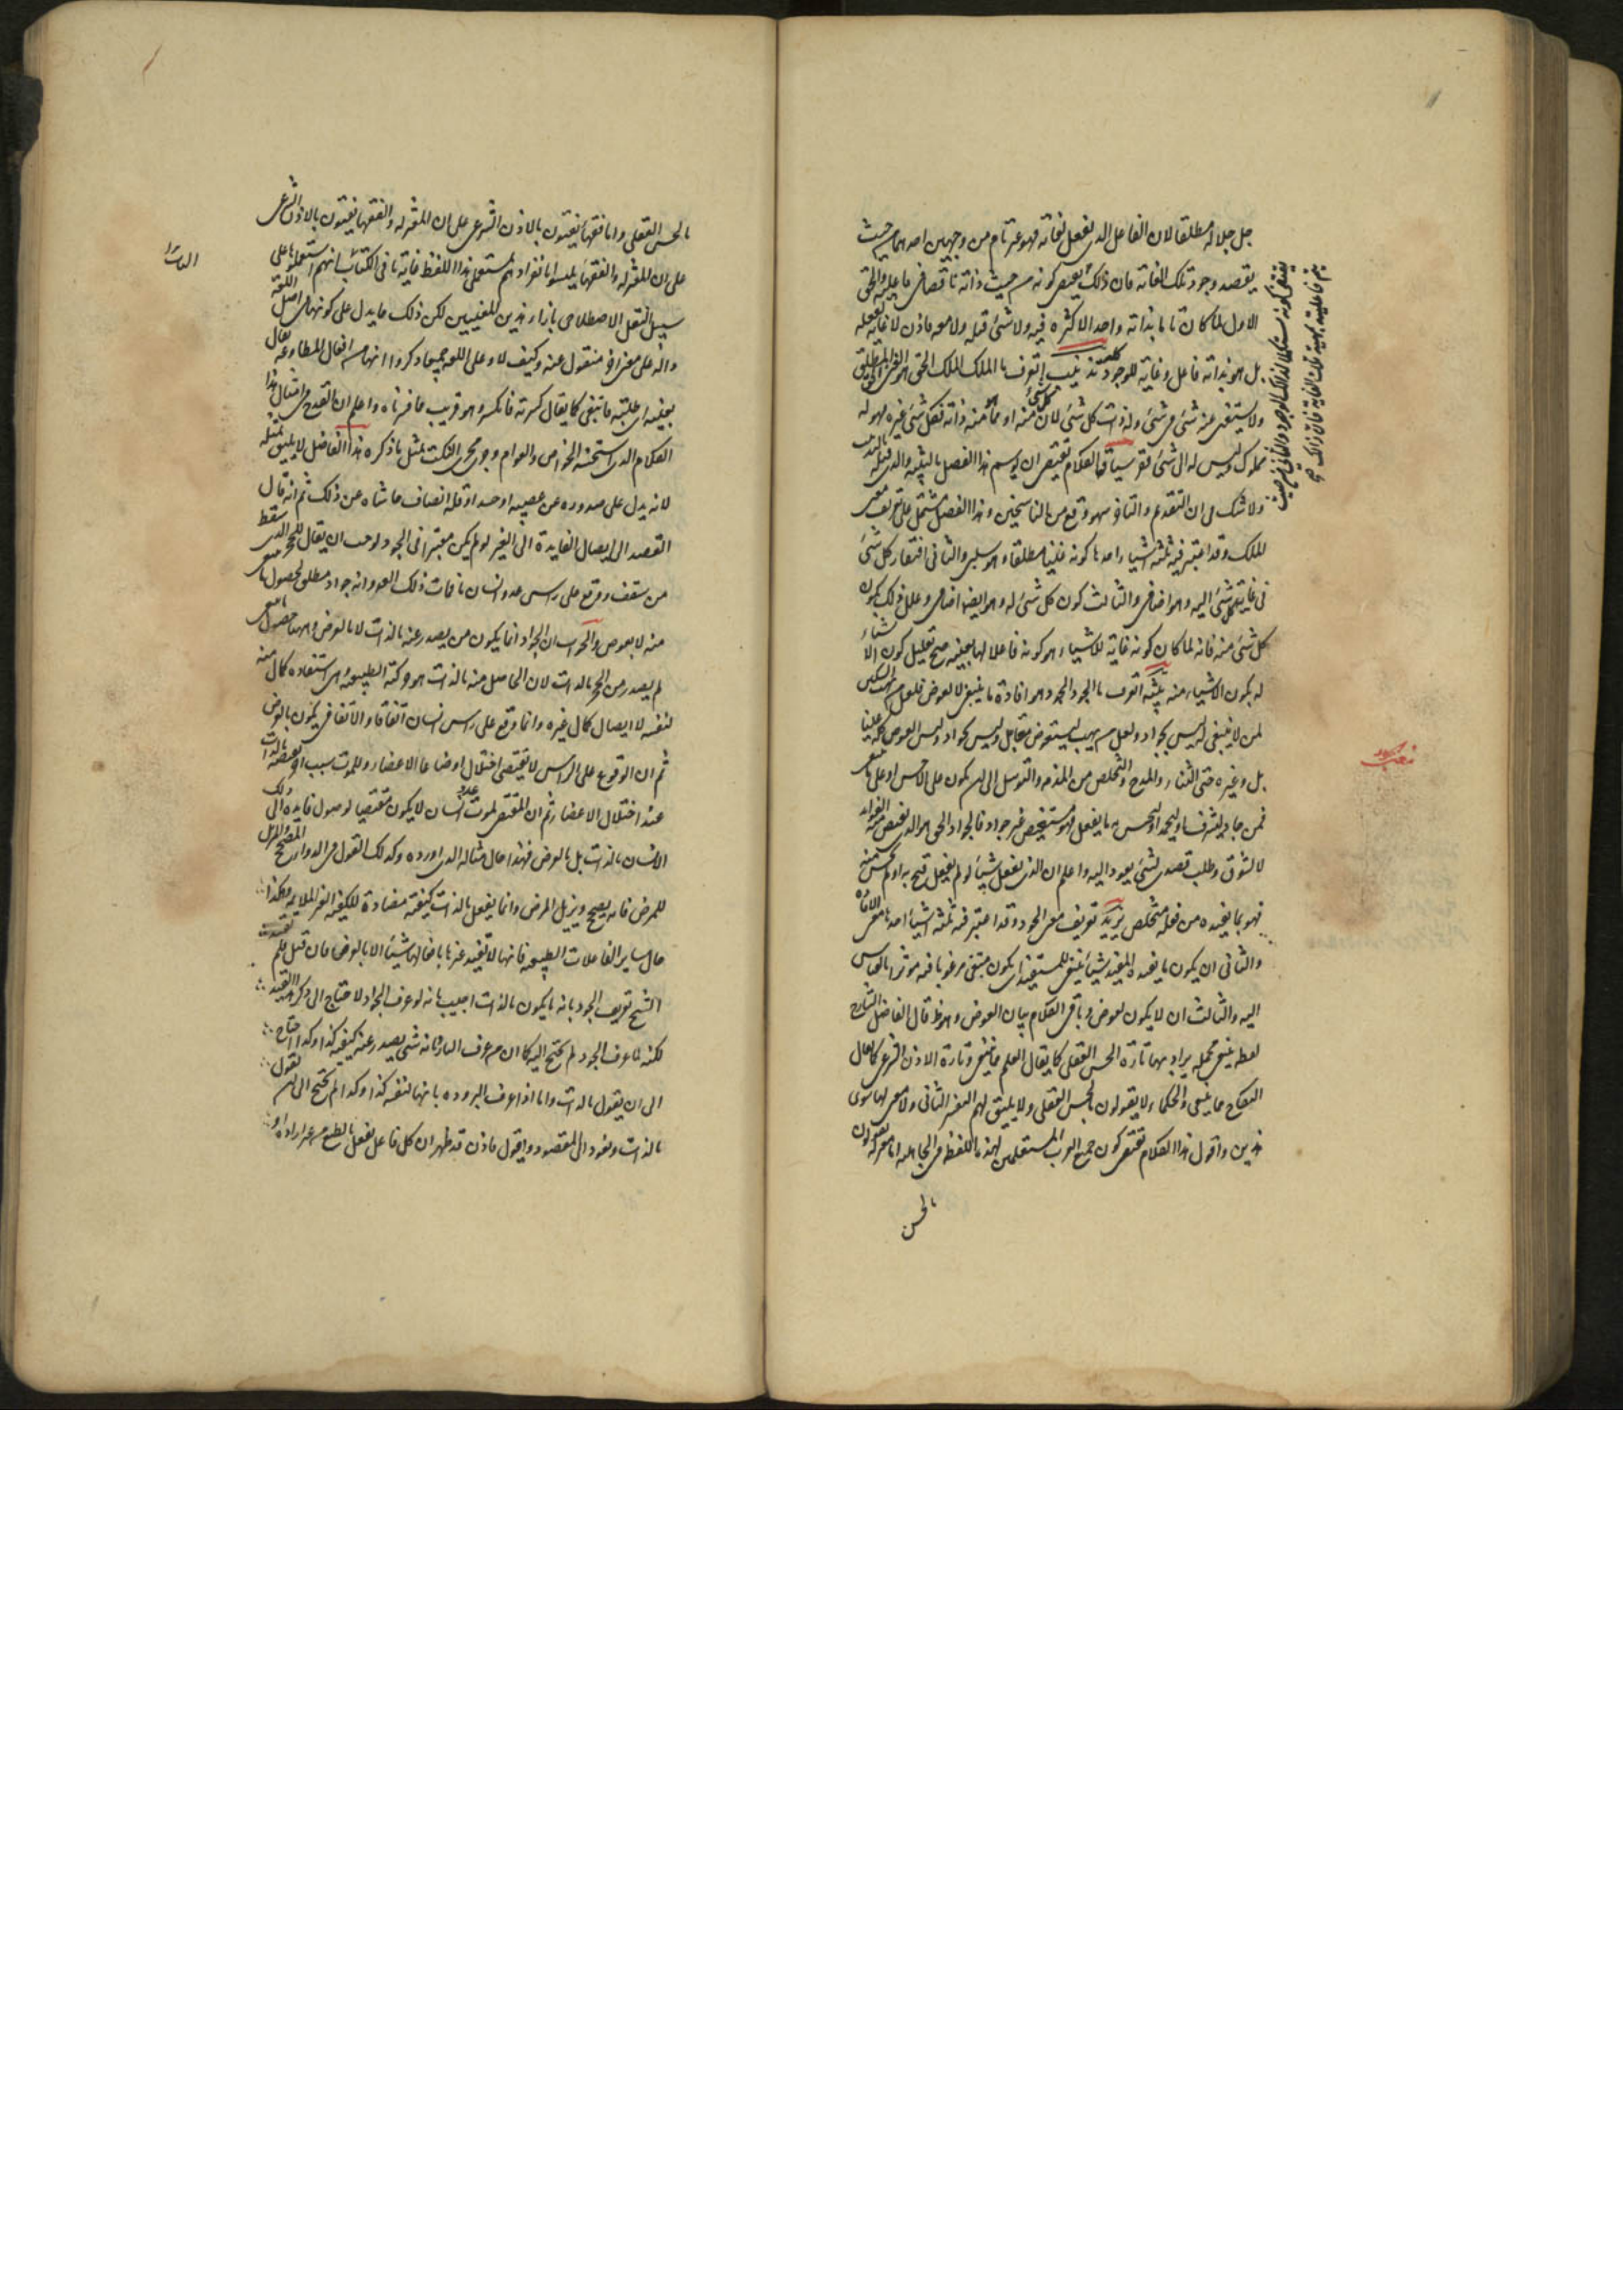 جل جلاله مطلقا لان الفاعل الذى يفعل لغاية فهو غير تام من وجهين احدهما من حيث
يقصد وجود تلك الغاية فان ذلك يقتضى كونه من حيث ذاته ناقصا فى فاعليته والحق
الاول لما كان تاما بذاته واحدا لا كثرة فيه ولا شئ قبله ولا معه فاذن لا غاية لفعله
بل هو بذاته فاعل وغاية للوجود كله تذنيب اتعرف ما الملك الملك الحق هو الغنى الحق المطلق
ولا يستغنى عنه شئ فى شئ وله ذات كل شئ لان كل شئ منه او مما منه ذاته فكل شئ غيره فهو له
مملوك وليس له الى شئ فقر سياقة الكلام تقتضى ان يوسم هذا الفصل بالتنبيه والذى قبله بالتذنيب
ولا شك فى ان التقدم والتاخر سهو وقع من الناسخين وهذا الفصل مشتمل على تعريف معنى
الملك وقد اعتبر فيه ثلثة اشياء احدها كونه غنيا مطلقا وهو سلبى والثانى افتقار كل شئ
فى كل شئ اليه وهو اضافى والثالث كون كل شئ له وهو ايضا اضافى وعلل ذلك بكون
كل شئ منه فانه لما كان كونه غاية للاشياء هو كونه فاعلا لها بعينه صح تعليل كون الاشياء
له بكون الاشياء منه تنبيه اتعرف ما الجود الجود هو افادة ما ينبغى لا لعوض فلعل من يهب السكين
لمن لا ينبغى له ليس بجواد ولعل من يهب ليستعيض معامل وليس بجواد وليس العوض كله عينا
بل وغيره حتى الثناء والمدح والتخلص من المذمة والتوسل الى ان يكون على الاحسن او على ما ينبغى
فمن جاد ليشرف او ليحمد او ليحسن به ما يفعل فهو مستعيض غير جواد فالجواد الحق هو الذى تفيض منه الفوائد
لا لشوق وطلب قصدى لشئ يعود اليه واعلم ان الذى يفعل شيئا لو لم يفعله قبح به او لم يحسن منه
فهو بما يفيده من فعله متخلص يريد تعريف معنى الجود وقد اعتبر فيه ثلثة اشياء احدها معنى الافادة
والثانى ان يكون ما يفيده المفيد شيئا ينبغى للمستفيد اى يكون مبتغى مرغوبا فيه موثرا بالقياس
اليه والثالث ان لا يكون لعوض وباقى الكلام بيان العوض وهو ظ قال الفاضل الشارح
لفظه ينبغى مجملة يراد بها تارة الحسن العقلى كما يقال العلم مما ينبغى وتارة الاذن الشرعى كما يقال
النكاح مما ينبغى والحكماء لا يقولون بالحسن العقلى ولا يليق لهم التفسير الثانى ولا معنى لها سوى
هذين واقول هذا الكلام يقتضى كون جميع العرب المستعملين لهذه اللفظة فى الجاهلية اما معتزلة يقولون
بالحسن
يقتضى كونه مستكملا بذلك الوجود والثانى من حيث
يتم فاعليته بمهية تلك الغاية فان ذلك
بالحسن العقلى واما فقهاء يفتون بالاذن الشرعى على ان المعتزلة والفقهاء يفتون بالاذن الشرعى
على ان المعتزلة والفقهاء ليسوا بانفرادهم مستعملى هذا اللفظ غاية ما فى الكتاب انهم استعملوها على
سبيل النقل الاصطلاحى بازاء هذين المعنيين لكن ذلك مما يدل على كونها فى اصل اللغة
دالة على معنى اخر منقول عنه وكيف لا وعلى اللغة جميعا ذكروا انها من افعال المطاوعة يقال
بغيته اى طلبته فانبغى كما يقال كسرته فانكسر وهو قريب مما فسرناه واعلم ان القدح فى امثال هذا
الكلام الذى استحسنه الخواص والعوام وجرى مجرى النكت بمثل ما ذكره هذا الفاضل لا يليق بمثله
لانه يدل على صدوره عن عصبية او حسد او قلة انصاف حاشاه عن ذلك ثم انه قال
القصد الى ايصال الفايدة الى الغير لو لم يكن معتبرا فى الجود لوجب ان يقال للحجر الذى سقط
من سقف ووقع على راس عدو انسان مات ذلك العدو انه جواد مطلق لحصول ما ينبغى
منه لا بعوض والجواب ان الجواد انما يكون من يصدر عنه بالذات لا بالعرض وههنا حصول ما ينبغى
لم يصدر من الحجر بالذات لان الحاصل منه بالذات هو حركته الطبيعية وهى استفادة كمال منه
لنفسه لا ايصال كمال لغيره وانما وقع على راس انسان اتفاقا والاتفاقى يكون بالعرض
ثم ان الوقوع على الراس لا يقتضى اختلال اوضاع الاعضاء وللموت سبب اخر يقتضيه بالذات
عند اختلال الاعضاء ثم ان المقتضى لموت عدو انسان لا يكون مقتضيا لوصول فايدة الى ذلك
الانسان بالذات بل بالعرض فهذا حال مثاله الذى اورده وكذلك القول فى الدواء المصحح المزيل
للمرض فانه يصحح ويزيل المرض وانما يفعل بالذات كيفية مضادة للكيفية الغير الملايمة وهكذا
حال ساير الفاعلات الطبيعية فانها لا تفيد غيرها بافعالها شيئا الا بالعرض فان قيل فلم لم يقيد
الشيخ تعريف الجود بانه ما يكون بالذات اجيب بانه لو عرف الجواد لاحتاج الى ذكر هذا القيد
لكنه لما عرف الجود لم يحتج اليه كما ان من عرف البارد بانه شئ يصدر عنه كيفية كذا وكذا احتاج
الى ان يقول بالذات واما اذا عرف البرودة بانها كيفية كذا وكذا لم يحتج الى ان يقول
بالذات ونعود الى المقصود واقول فاذن قد ظهر ان كل فاعل يفعل بالطبع من غير ارادة او